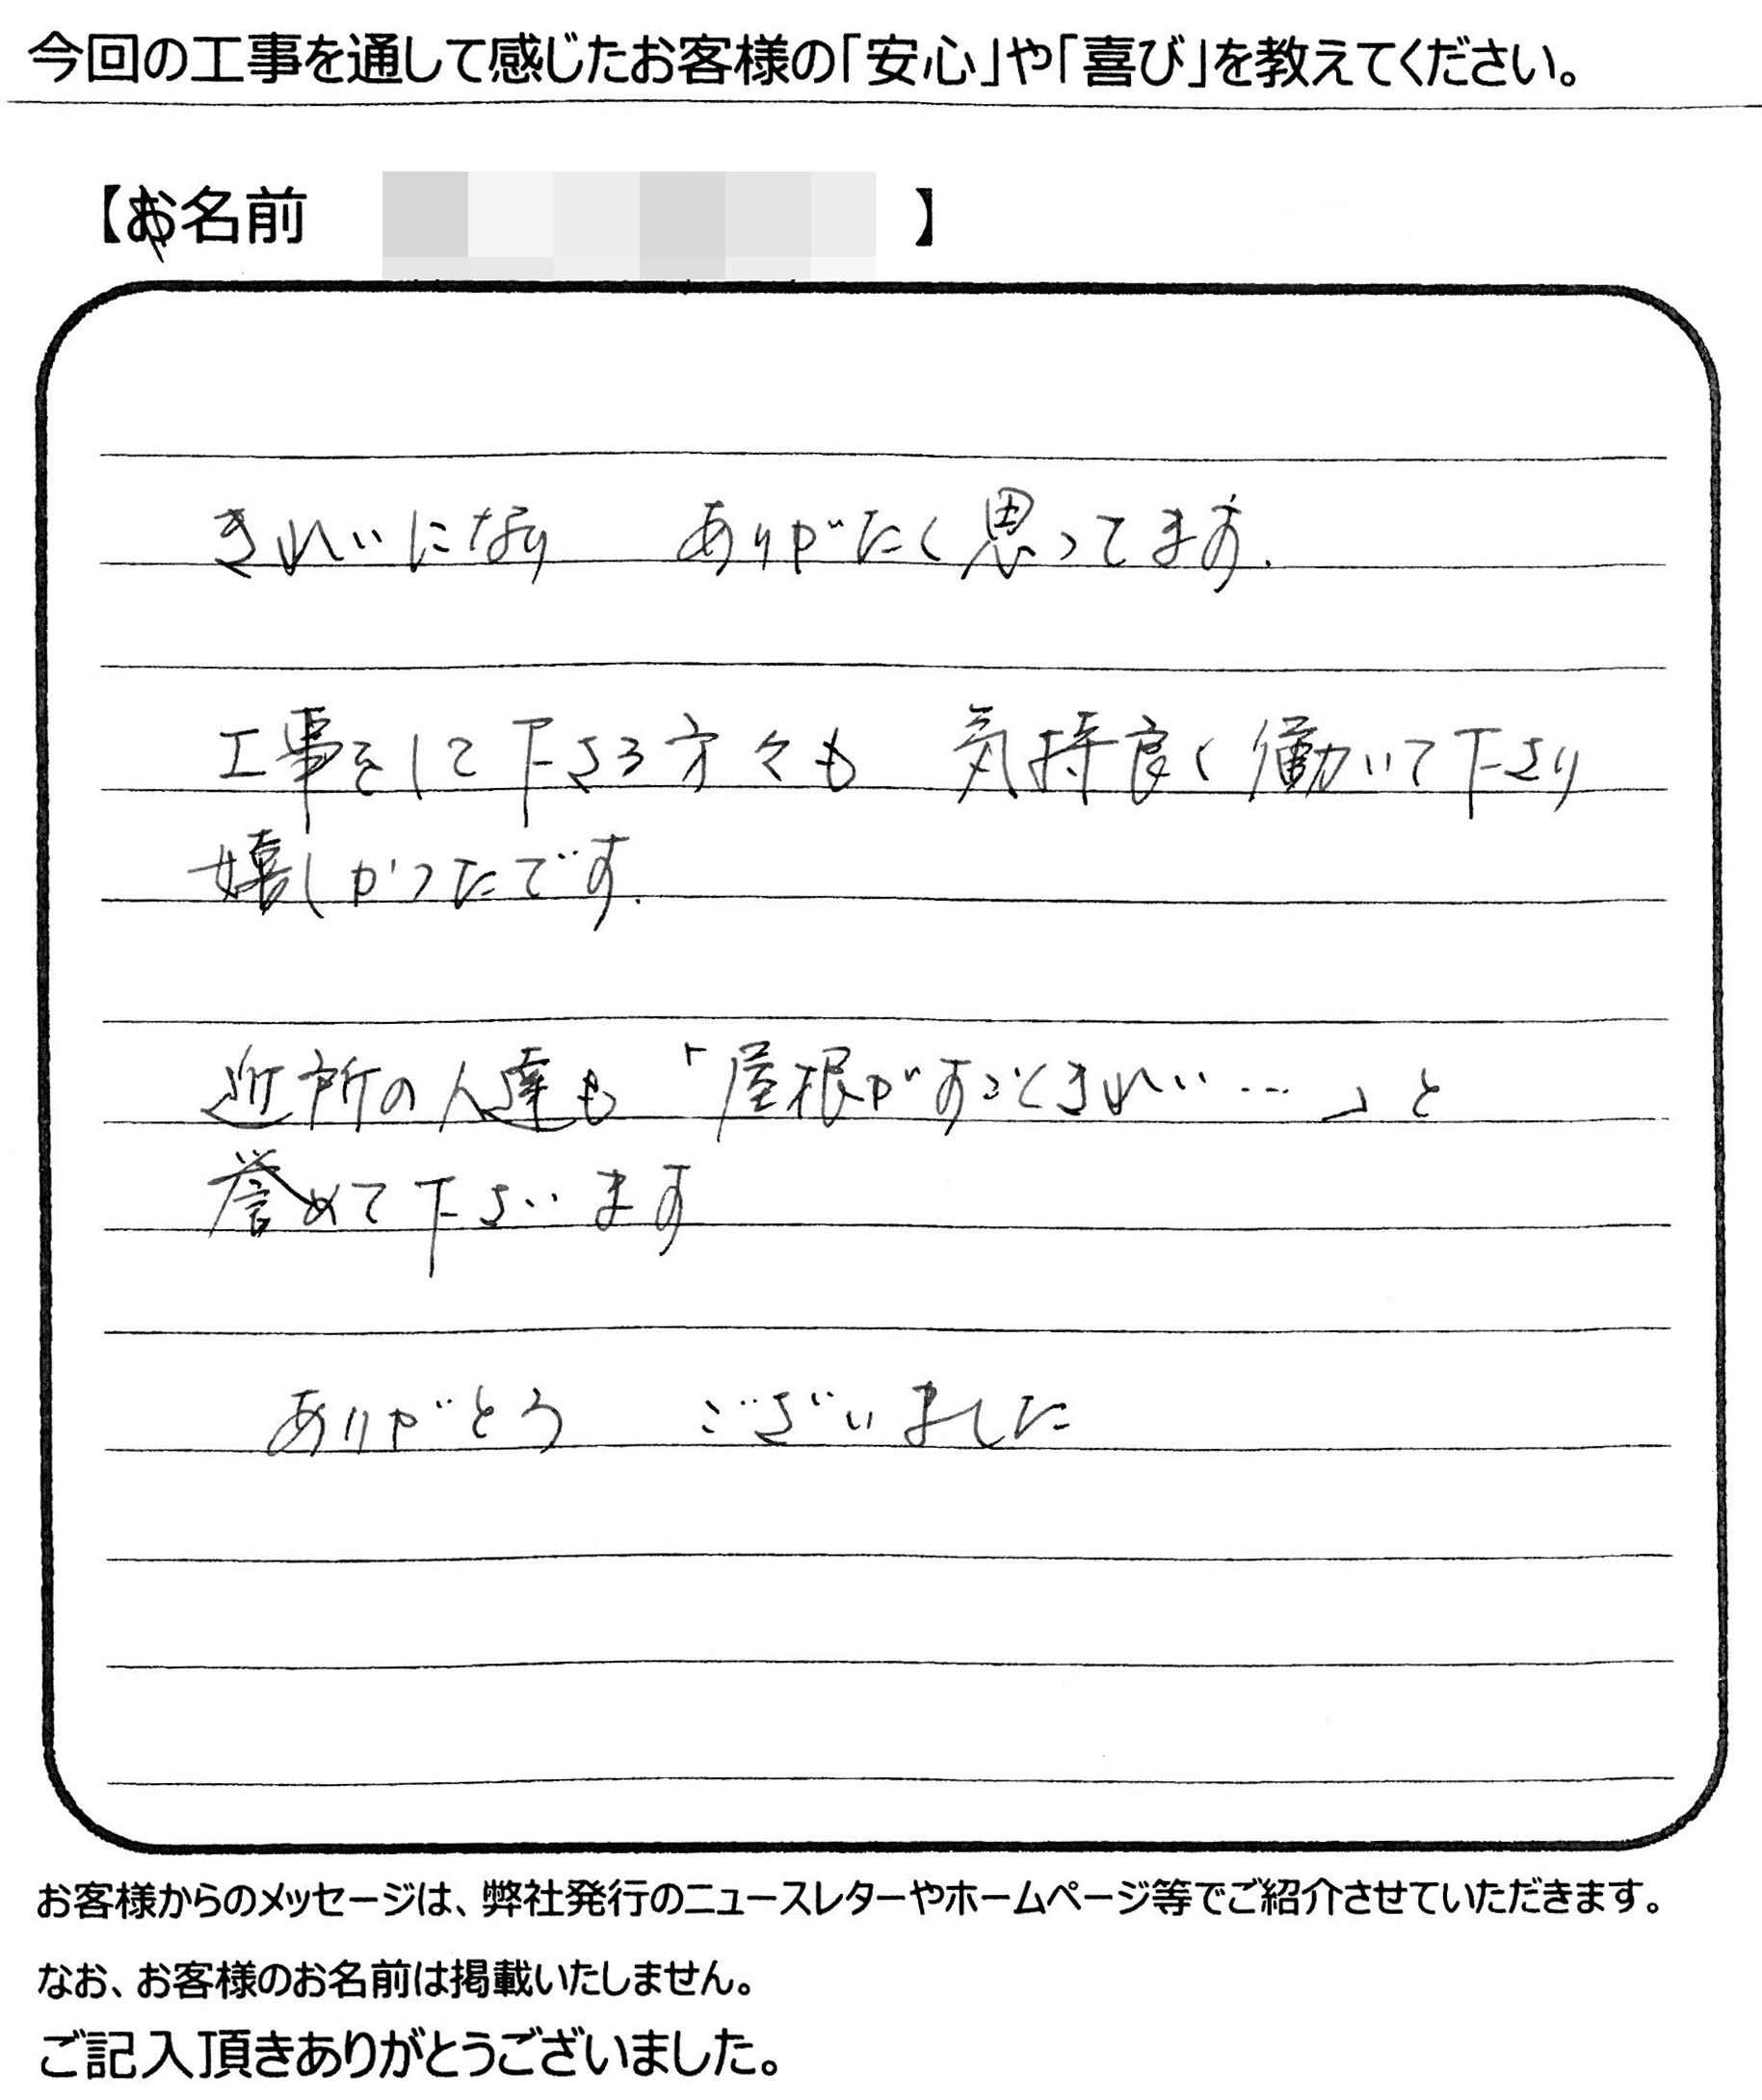 今回の工事を通して感じたお客様の「安心」や「喜び」を教えてください。
【お名前 】
きれいになり ありがたく思ってます.
工事をして下さる方々も 気持良く働いて下さり
嬉しかったです.
近所の人達も「屋根がすごくきれい…」と
誉めて下さいます
ありがとう ございました
お客様からのメッセージは、弊社発行のニュースレターやホームページ等でご紹介させていただきます。
なお、お客様のお名前は掲載いたしません。
ご記入頂きありがとうございました。